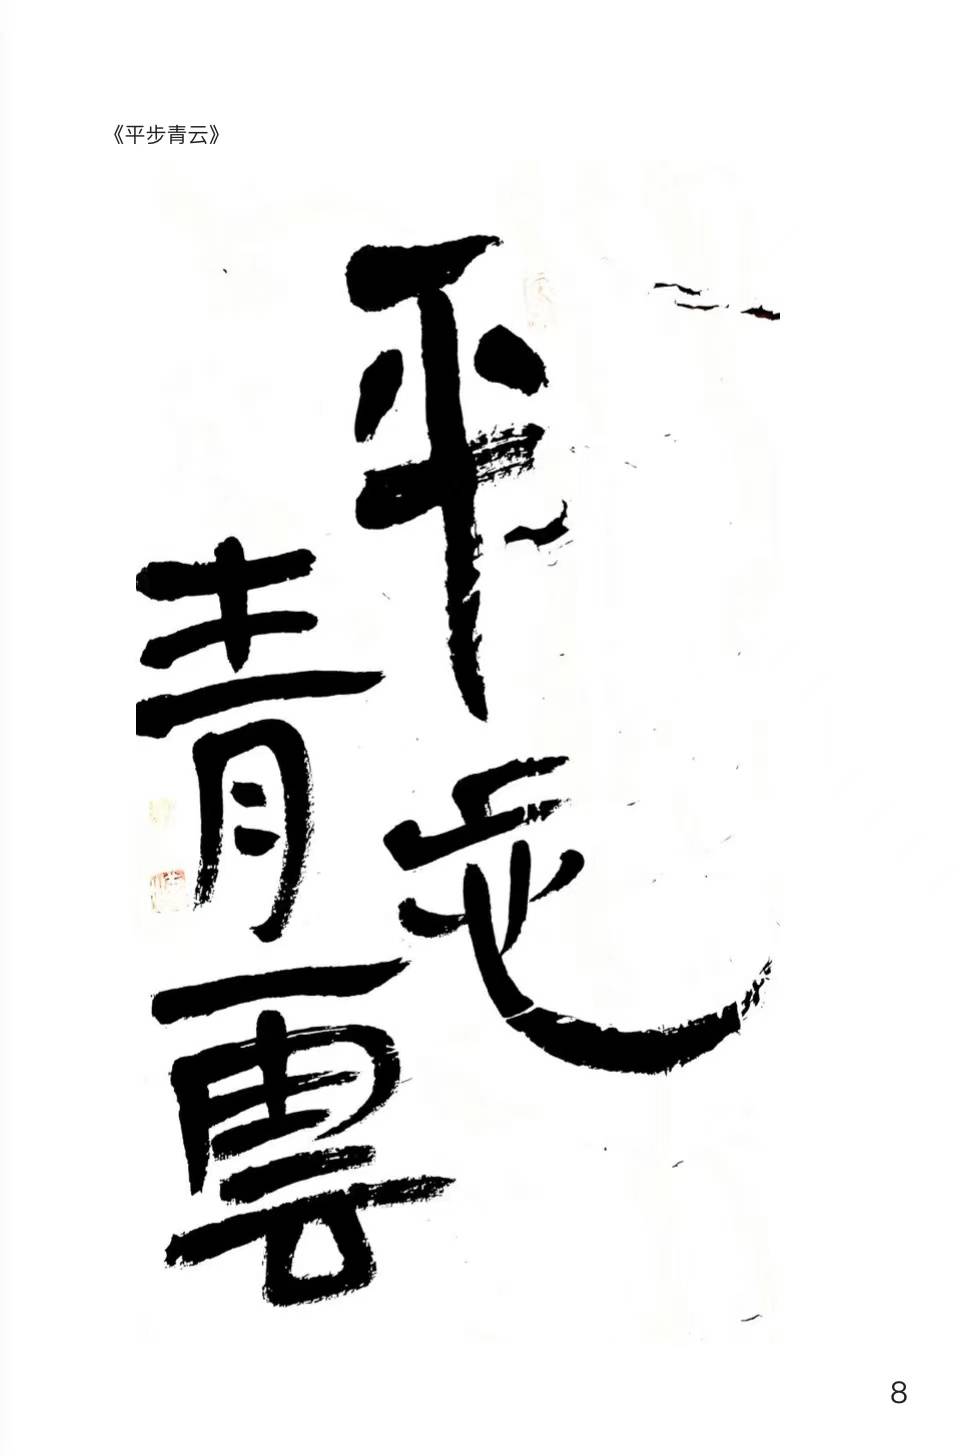 《平步青云》
平步
青雲
8